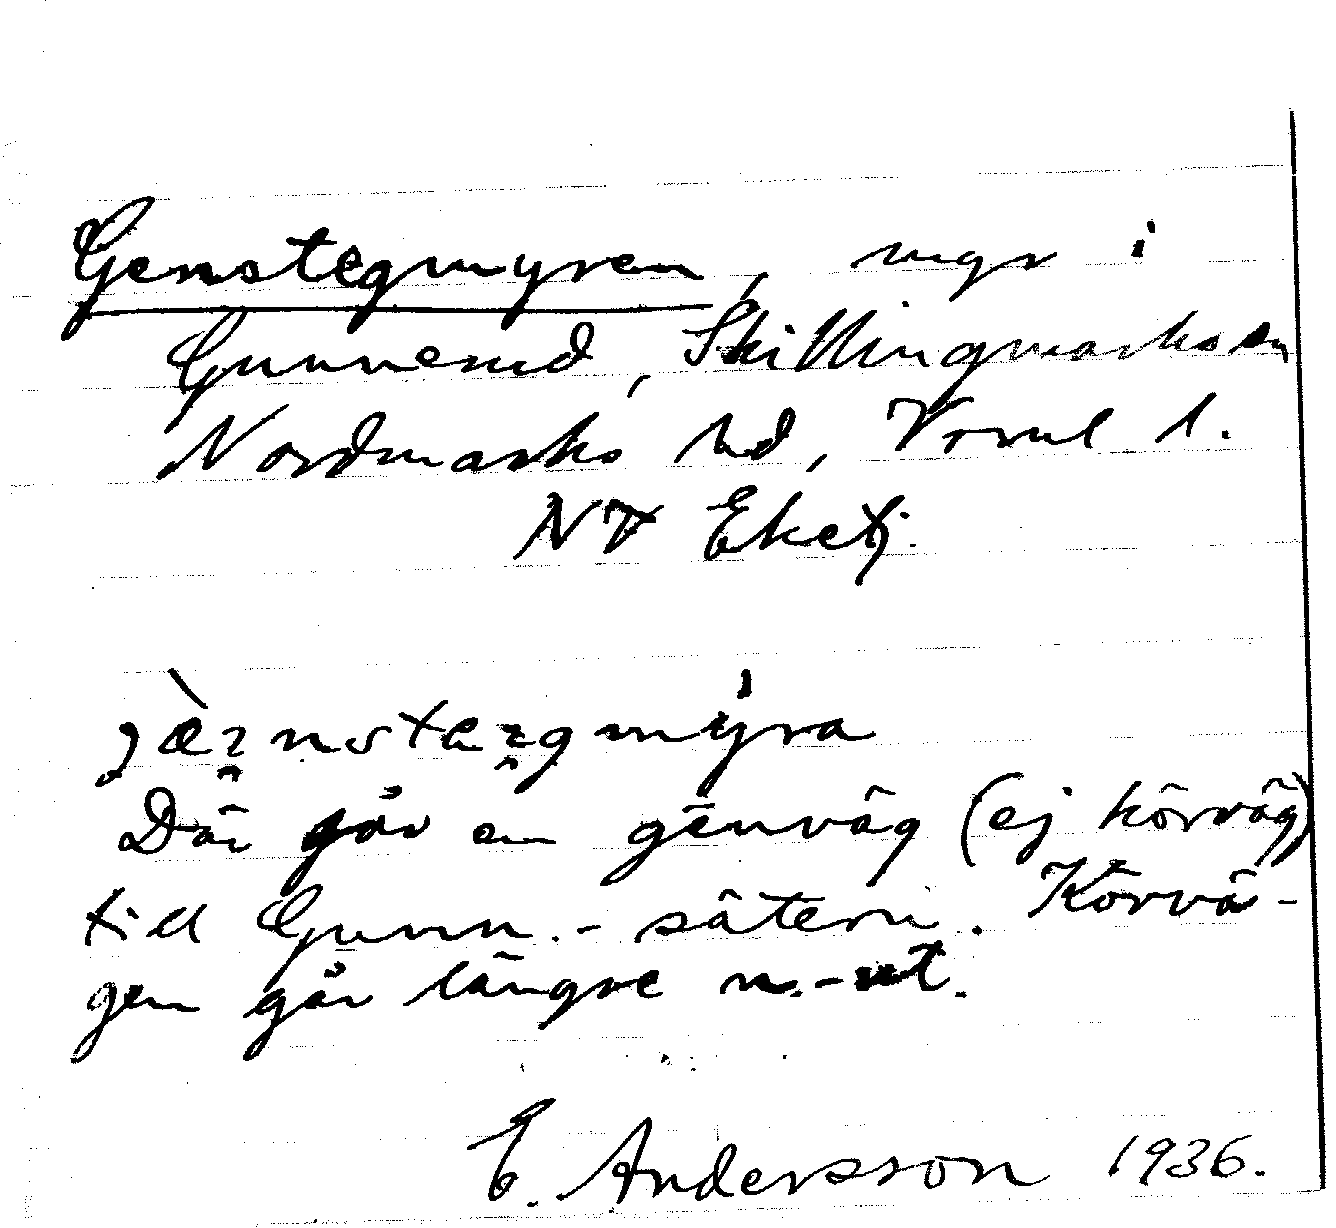 Genstegmyren, myr i
Gunnerud, Skillingmarks sn
Nordmarks hd, Vrml l.
NV Eketj.
jæ̀nstegmýra
Där går en genväg (ej körväg)
till Gunn.-sätern. Körvä-
gen går längre n.-ut.
E. Andersson 1936.